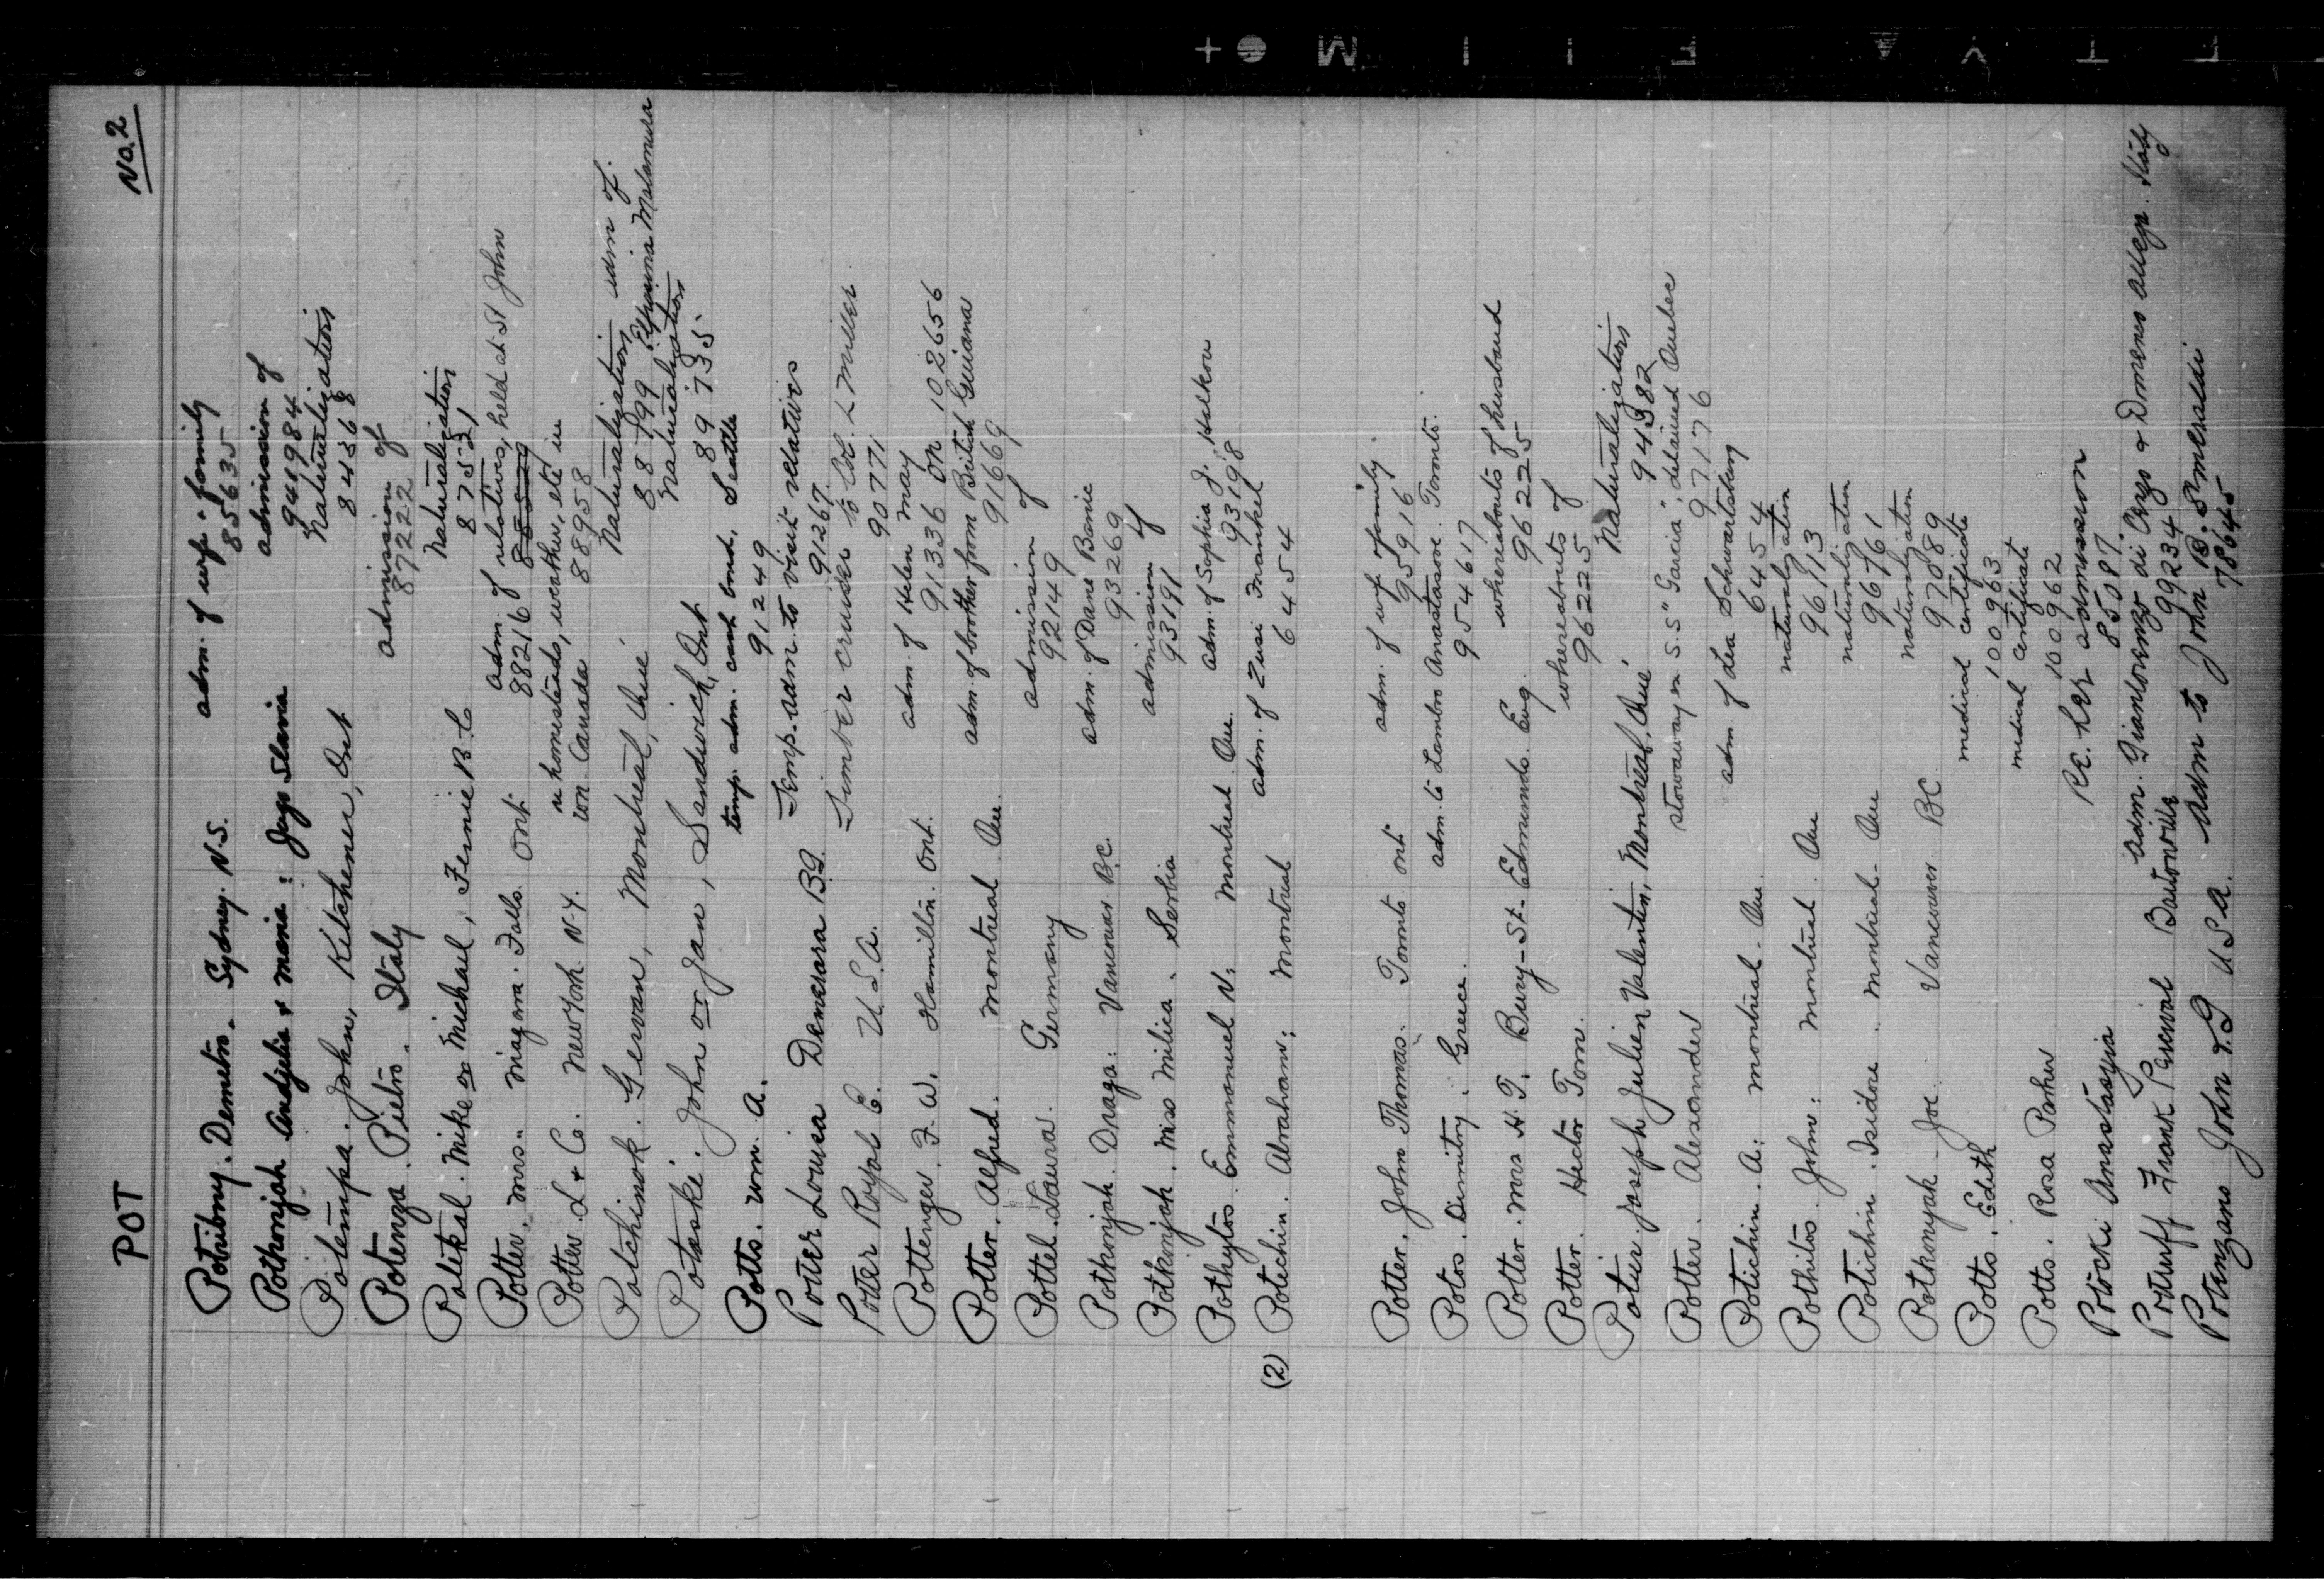 POT
No. 2
Potribny. Demetro. Sydney. N.S. adm. of wife & family
85635
Pothonjak Andjelia & Maria: Jugo Slavia admission of
941984
Potempa. John, Kitchener, Ont Naturalization
84368
Potenza. Pietro. Italy admission of
87222
Potekal. Mike or Michael, Fernie B.C Naturalization
87521
Potter. Mrs. Niagara. Falls. Ont. adm. of relatives, held at St John
88216
Potter. L & Co. New York. N.Y. re homesteads, weather, etc in
wn. Canada 88958
Potchinok. Gervan, Montreal, Que. Naturalization adm of.
88799
Potoski. John or Jan, Sandwich, Ont Naturalization
89735
Potts. Wm. A. temp. adm. cash bond, Seattle
91249
Potter Louisa Demerara B.G. Temp. adm. to visit relatives
91267.
Potter Royal E. U.S.A. Timber cruiser to Col. L Miller
90771
Pottenger. F. W. Hamilton. Ont. adm. of Helen May
91336 on 102656
Potter. Alfred. Montreal Que. adm. of brother from British Guiana
91669
Pottel. Laura. Germany admission of
92149
Pothonjak. Draga. Vancouver B.C. adm. of Dane Banic
93269
Pothonjak. Miss Milica. Serbia admission of
93191
Pothytos. Emmanuel N. Montreal Que. adm. of Sophia J. Halkow
93198
(2) Potechin. Abraham: Montreal adm. of Zusi Frankel
6454
Potter. John Thomas. Toronto Ont. adm. of wife & family
95916
Potos. Dimitry. Greece. adm. to Lambro Anastasove. Toronto.
954617
Potter. Mrs H. T. Bury-St-Edmunds. Eng. whereabouts of husband
96225
Potter. Hector Tom. whereabouts of
96225
Potvin. Joseph Julien Valentin, Montreal, Que. Naturalization
94382
Potter. Alexander stowaway ex S.S "Garcia", detained Quebec
97176
Potichin. A. Montreal. Que. adm of Lea Schwartzburg
6454
Pothitos. John. Montreal. Que naturalization
96713
Potichin. Isidore. Montreal. Que naturalization
96761
Pothonyak. Joe. Vancouver BC. naturalization
97089
Potts. Edith medical certificate
100963
Potts. Rosa Parker medical certificate
100962
Potocki Anastasyia RE. her admission
85087.
Potruff Frank Percival adm. Gianlorenzo di Ciezo & Domenes alleys. Italy
99234
Potenzano John & G USA. adm to John B. Smeraldi
78645